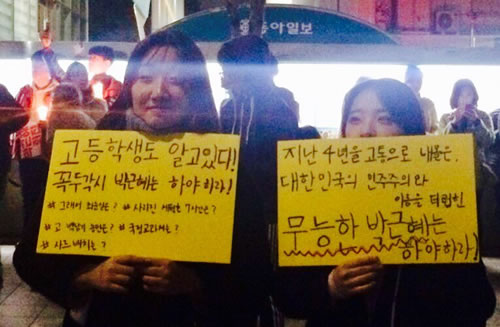 동아일보
고등학생도 알고있다!
꼭두각시 박근혜는 하야하라!
# 그래서 최순실은? # 사라진 세월호 7시간은?
# 고 백남기 농민은? # 국정교과서는?
# 사드배치는?
지난 4년을 고통으로 내몰은,
대한민국의 민주주의와
이름을 더럽힌
무능하 박근혜는
하야하라!